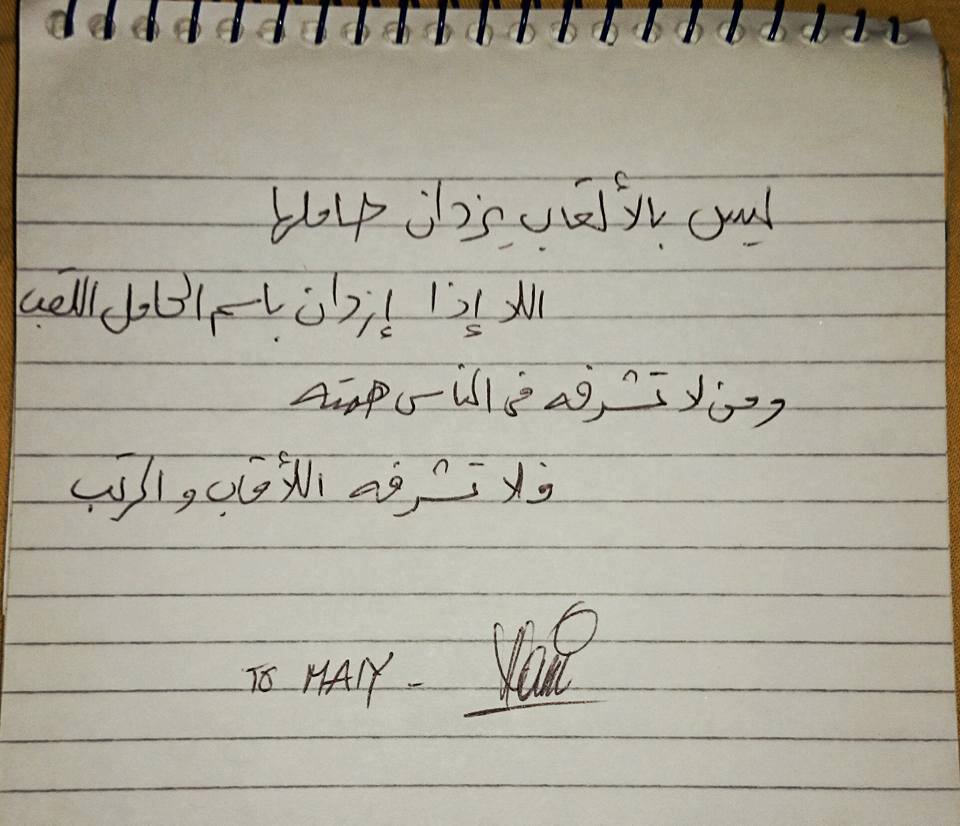 ليس بالألقاب يزدان حاملها
اللا إذا إزدان باسم الحامل اللقب
ومن لا تشرفه في الناس همته
فلا تشرفه اللأقاب والرتب
TO MAIY -